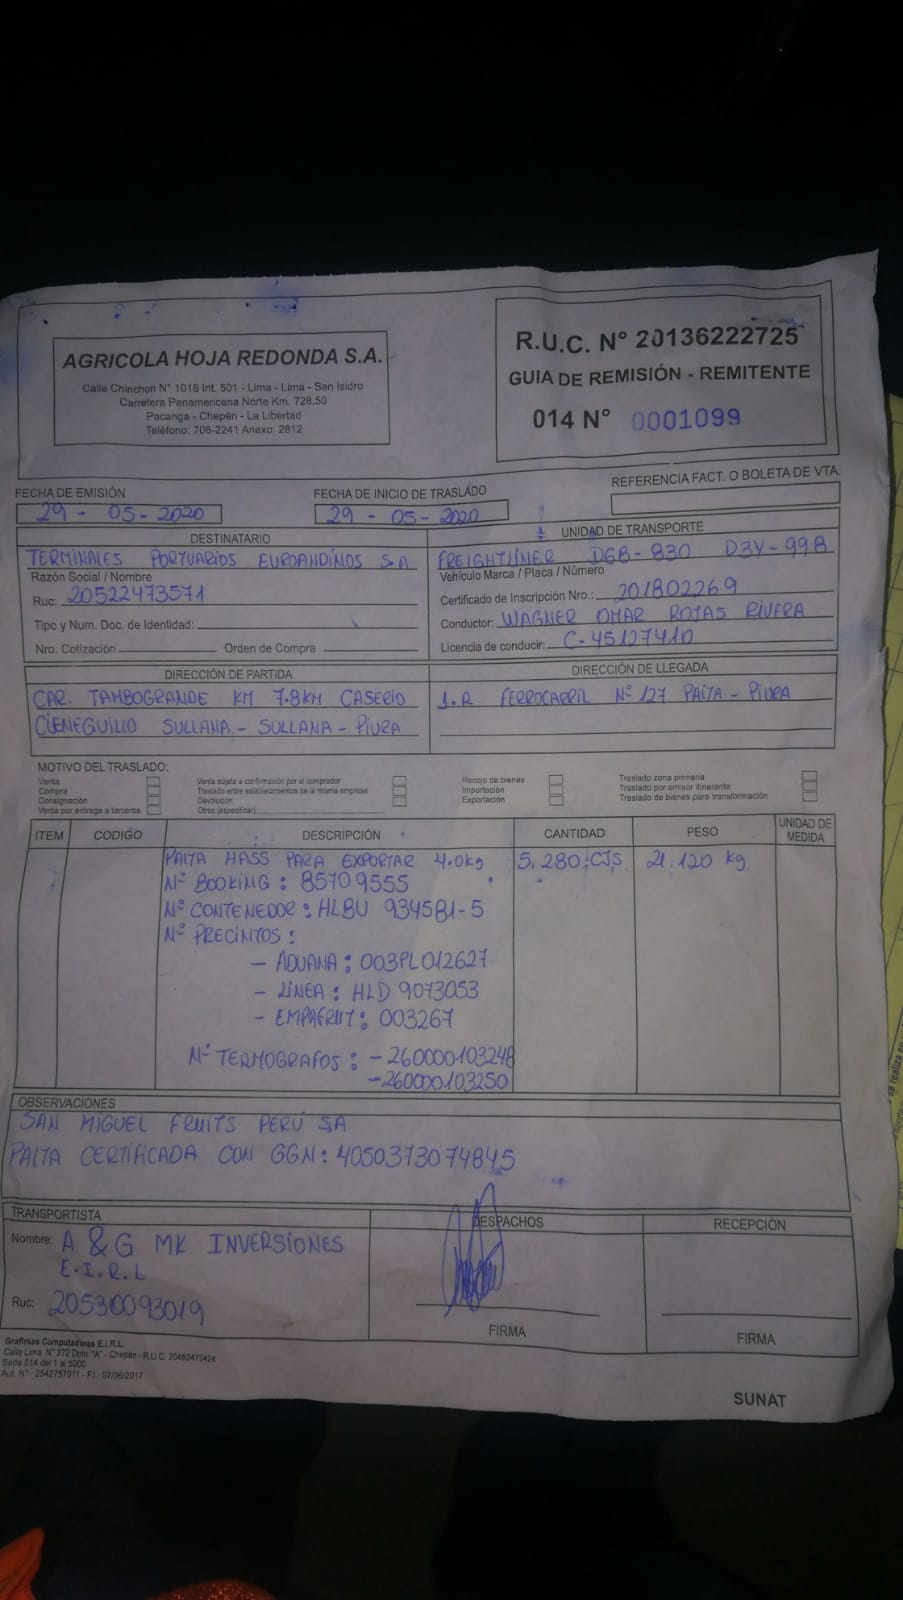 AGRICOLA HOJA REDONDA S.A.
Calle Chinchon N° 1018 Int. 501 - Lima - Lima - San Isidro
Carretera Panamericana Norte Km. 728.50
Pacanga - Chepén - La Libertad
Teléfono: 706-2241 Anexo: 2812
R.U.C. N° 20136222725
GUIA DE REMISIÓN - REMITENTE
014 N° 0001099
FECHA DE EMISIÓN
29 - 05 - 2020
FECHA DE INICIO DE TRASLADO
29 - 05 - 2020
REFERENCIA FACT. O BOLETA DE VTA.
DESTINATARIO
TERMINALES PORTUARIOS EUROANDINOS S A
Razón Social / Nombre
Ruc: 20522473571
Tipo y Num. Doc. de Identidad:
Nro. Cotización Orden de Compra
UNIDAD DE TRANSPORTE
FREIGHTLINER D6B-830 D3Y-998
Vehículo Marca / Placa / Número
Certificado de Inscripción Nro.: 201802269
Conductor: WAGNER OMAR ROJAS RIVERA
Licencia de conducir: C-45127410
DIRECCIÓN DE PARTIDA
CAR. TAMBOGRANDE KM 7.8KM CASERIO
CIENEGUILLO SULLANA - SULLANA - PIURA
DIRECCIÓN DE LLEGADA
J.R FERROCARRIL N° 127 PAITA - PIURA
MOTIVO DEL TRASLADO:
Venta
Compra
Consignación
Venta por entrega a terceros
Venta sujeta a confirmación por el comprador
Traslado entre establecimientos de la misma empresa
Devolución
Otros (especificar)
Recojo de bienes
Importación
Exportación
Traslado zona primaria
Traslado por emisor itinerante
Traslado de bienes para transformación
ITEM CODIGO DESCRIPCIÓN CANTIDAD PESO UNIDAD DE MEDIDA
PALTA HASS PARA EXPORTAR 4.0kg 5,280 CJS 21.120 kg.
N° BOOKING : 85709555
N° CONTENEDOR : HLBU 934581-5
N° PRECINTOS :
- ADUANA : 003PL012627
- LINEA : HLD 9073053
- EMPAFRUT : 003267
N° TERMOGRAFOS : - 260000103248
- 260000103250
OBSERVACIONES
SAN MIGUEL FRUITS PERÚ S.A
PALTA CERTIFICADA CON GGN: 4050373074845
TRANSPORTISTA
Nombre: A & G MK INVERSIONES
E.I.R.L
Ruc: 20530093019
DESPACHOS
FIRMA
RECEPCIÓN
FIRMA
Grafimas Computadoras E.I.R.L.
Calle Lima N° 272 Dpto. "A" - Chepén - R.U.C. 20482473424
Serie 014 del 1 al 5000
Aut. N° : 2542757011 - F.I.: 07/06/2017
SUNAT